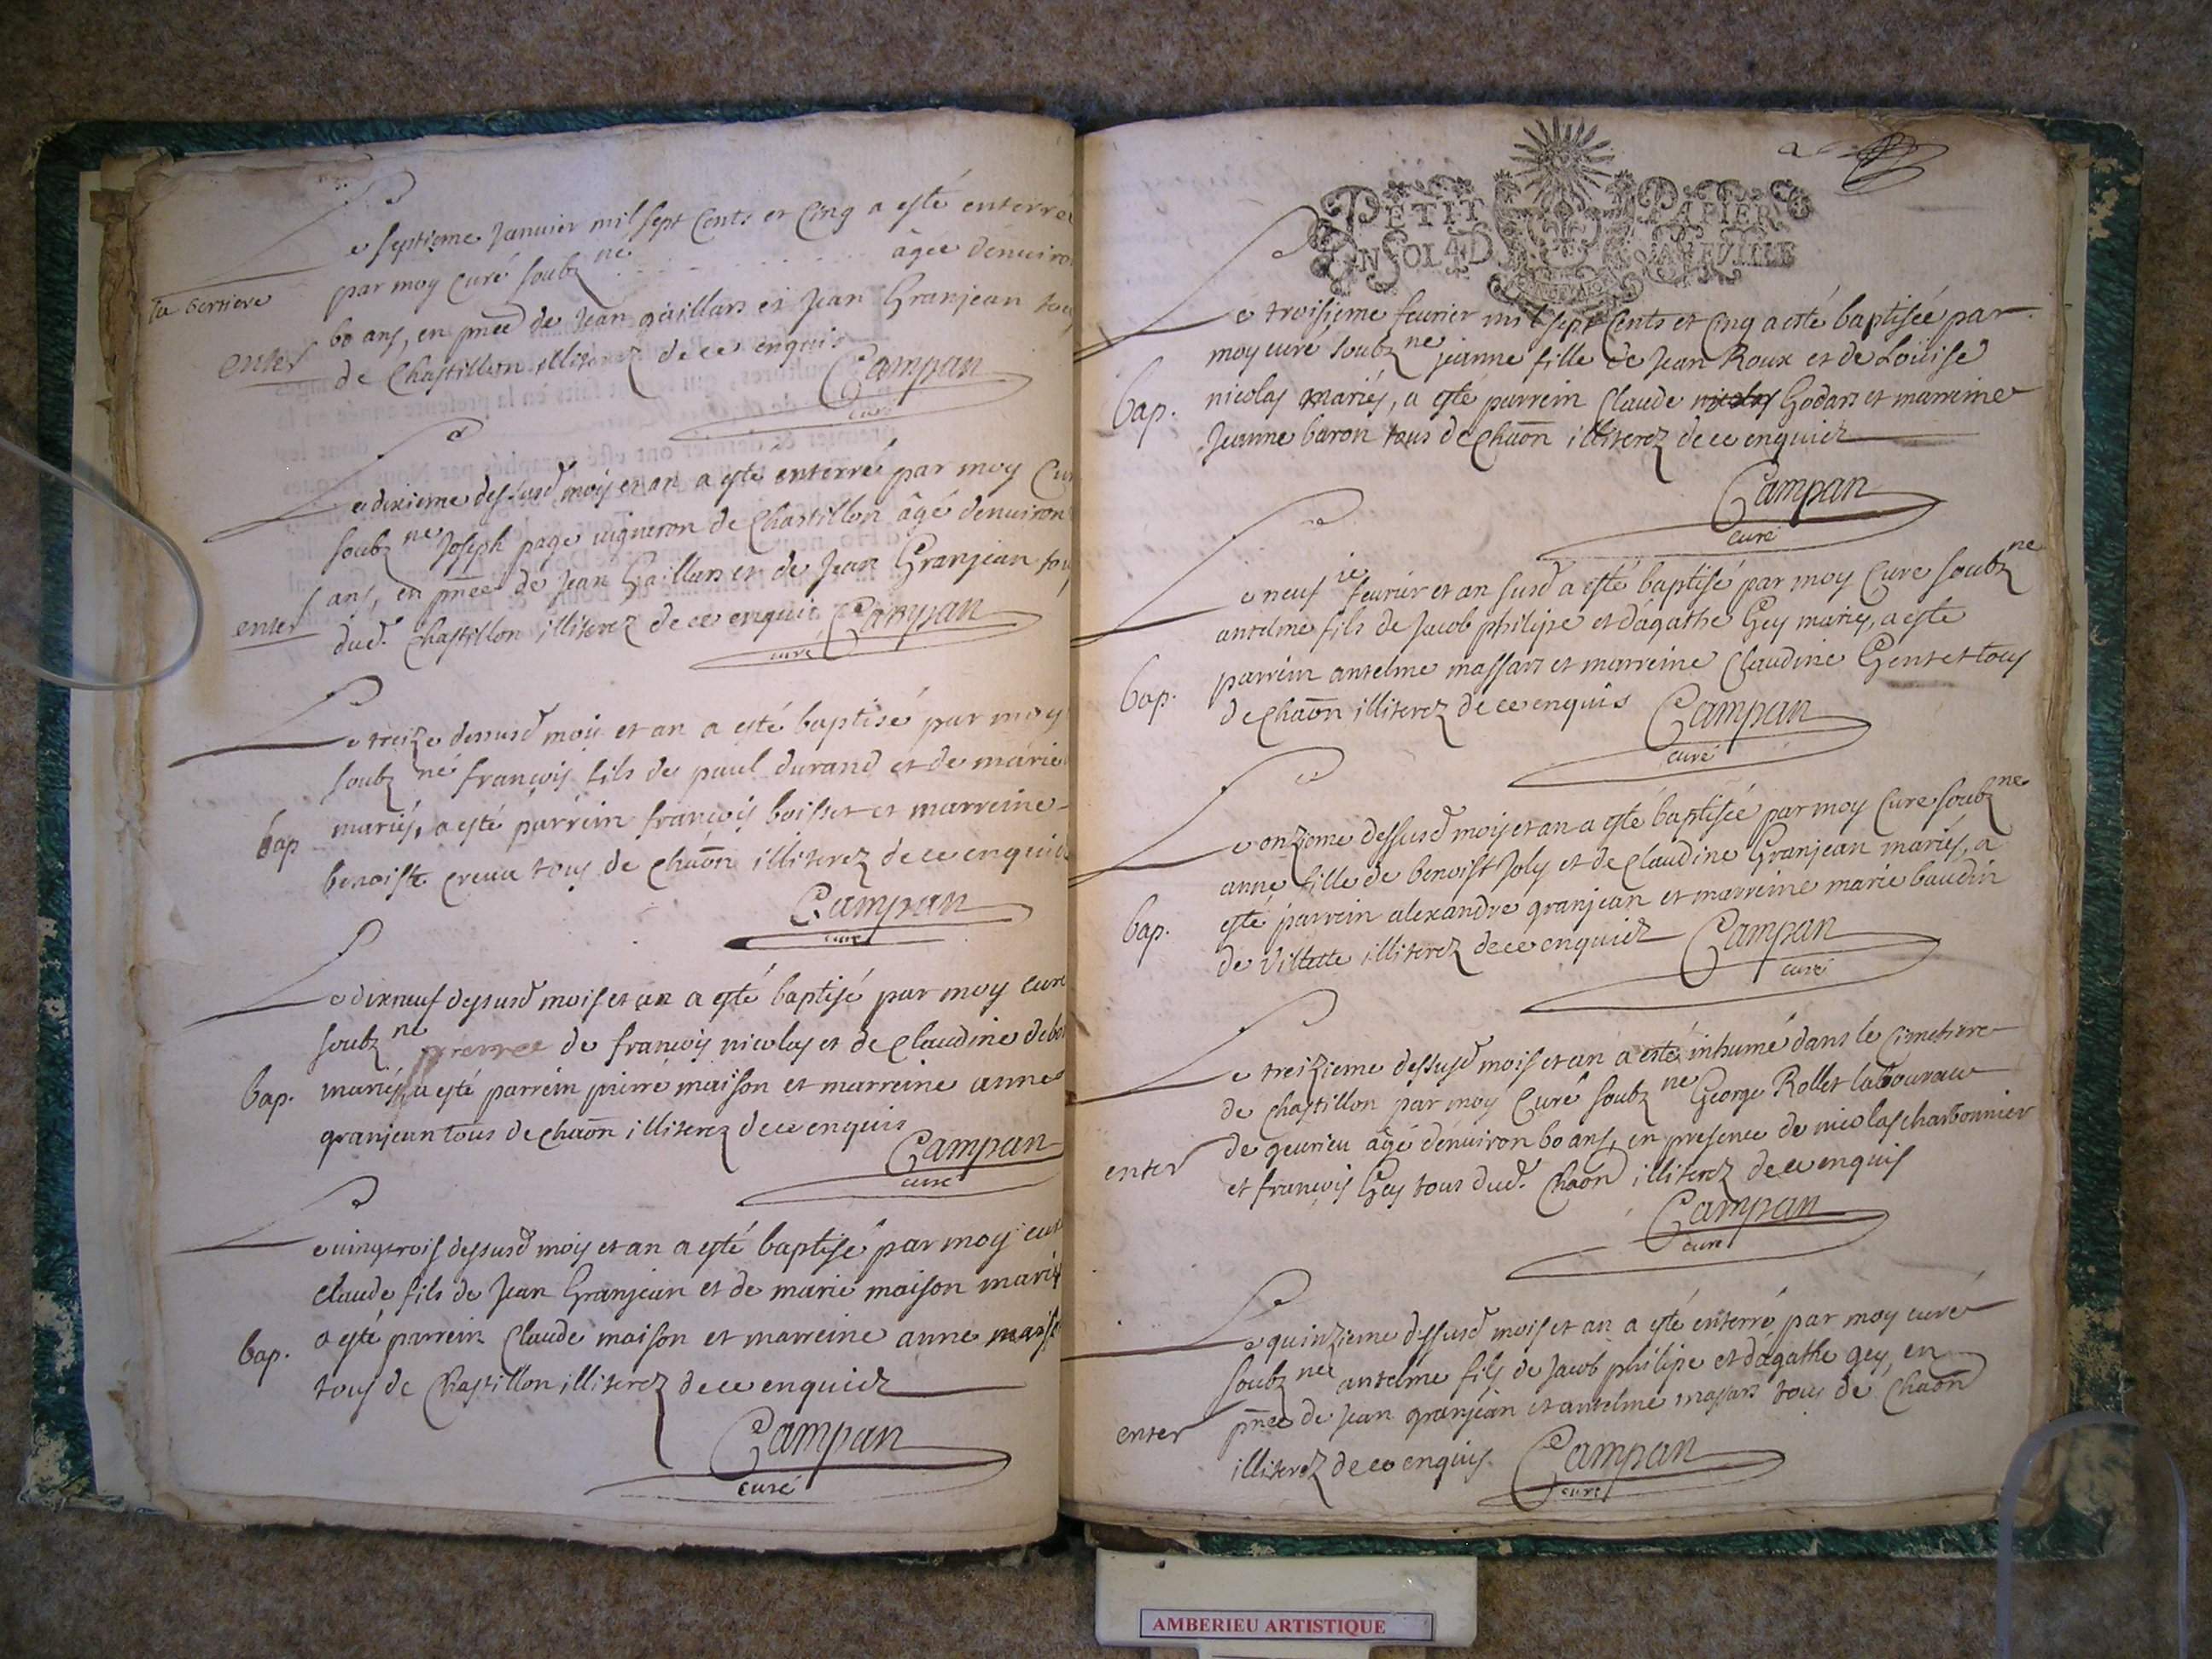 Le septieme Janvier mil sept Cents et Cinq a esté enterrée
par moy Curé soubz né âgée d'enuiron
60 ans, en pnce de Jean gaillars et Jean Granjean tous
enter de Chastillon illiterez de ce enquis
Campan
curé
Le dixieme dessusd mois et an a esté enterré par moy Curé
soubz né Joseph page uigneron de Chastillon âgé d'enuiron
ans, en pnce de Jean Gaillars et de Jean Granjean tous
enter dud. Chastillon illiterez de ce enquis Campan
curé
Le treize dessusd mois et an a esté baptisé par moy
soubz né françois fils de paul durand et de marie
bap mariés, a esté parrein françois boisset et marreine
benoiste creuu tous de Chaõn illiterez de ce enquis
Campan
curé
Le dixneuf dessusd mois et an a esté baptisé par moy curé
soubz né pierre de françois nicolas et de claudine
bap. mariés, a esté parrein pierre maison et marreine anne
granjean tous de chaõn illiterez de ce enquis
Campan
curé
Le uingtrois dessusd mois et an a esté baptisé par moy curé
claude fils de Jean Granjean et de marie maison mariés
bap. a esté parrein Claude maison et marreine anne
tous de Chastillon illiterez de ce enquiz
Campan
curé
PETIT PAPIER
UN SOL 4D LA FEUILLE
Le troisieme feurier mil sept Cents et Cinq a esté baptisée par
moy curé soubz né jeanne fille de Jean Roux et de Loüise
bap. nicolas mariés, a esté parrein Claude nicolas Godars et marreine
Jeanne baron tous de Chaõn illiterez de ce enquiz
Campan
curé
Le neuf ie feurier et an susd a esté baptisé par moy Curé soubz né
antelme fils de Jacob philipe et d'agathe Gey mariés, a esté
parrein antelme massars et marreine Claudine Gentet tous
bap. de chaõn illiterez de ce enquis Campan
curé
Le onzieme dessusd mois et an a esté baptisée par moy Curé soubz né
anne fille de benoist Joly et de Claudine Granjean mariés, a
bap. esté parrein alexandre granjean et marreine marie baudin
de Villette illiterez de ce enquiz Campan
curé
Le treizieme dessusd mois et an a esté inhumé dans le Cimetiere
de Chastillon par moy Curé soubz né George Rollet laboureur
enter de geurieu âgé d'enuiron 60 ans, en presence de nicolas charbonnier
et françois Gey tous dud. Chaõn illiterez de ce enquis
Campan
curé
Le quinzieme dessusd mois et an a esté enterré par moy curé
soubz né antelme fils de Jacob philipe et d'agathe gey, en
enter pnce de Jean granjean et antelme masars tous de Chaõn
illiterez de ce enquis. Campan
curé
AMBERIEU ARTISTIQUE